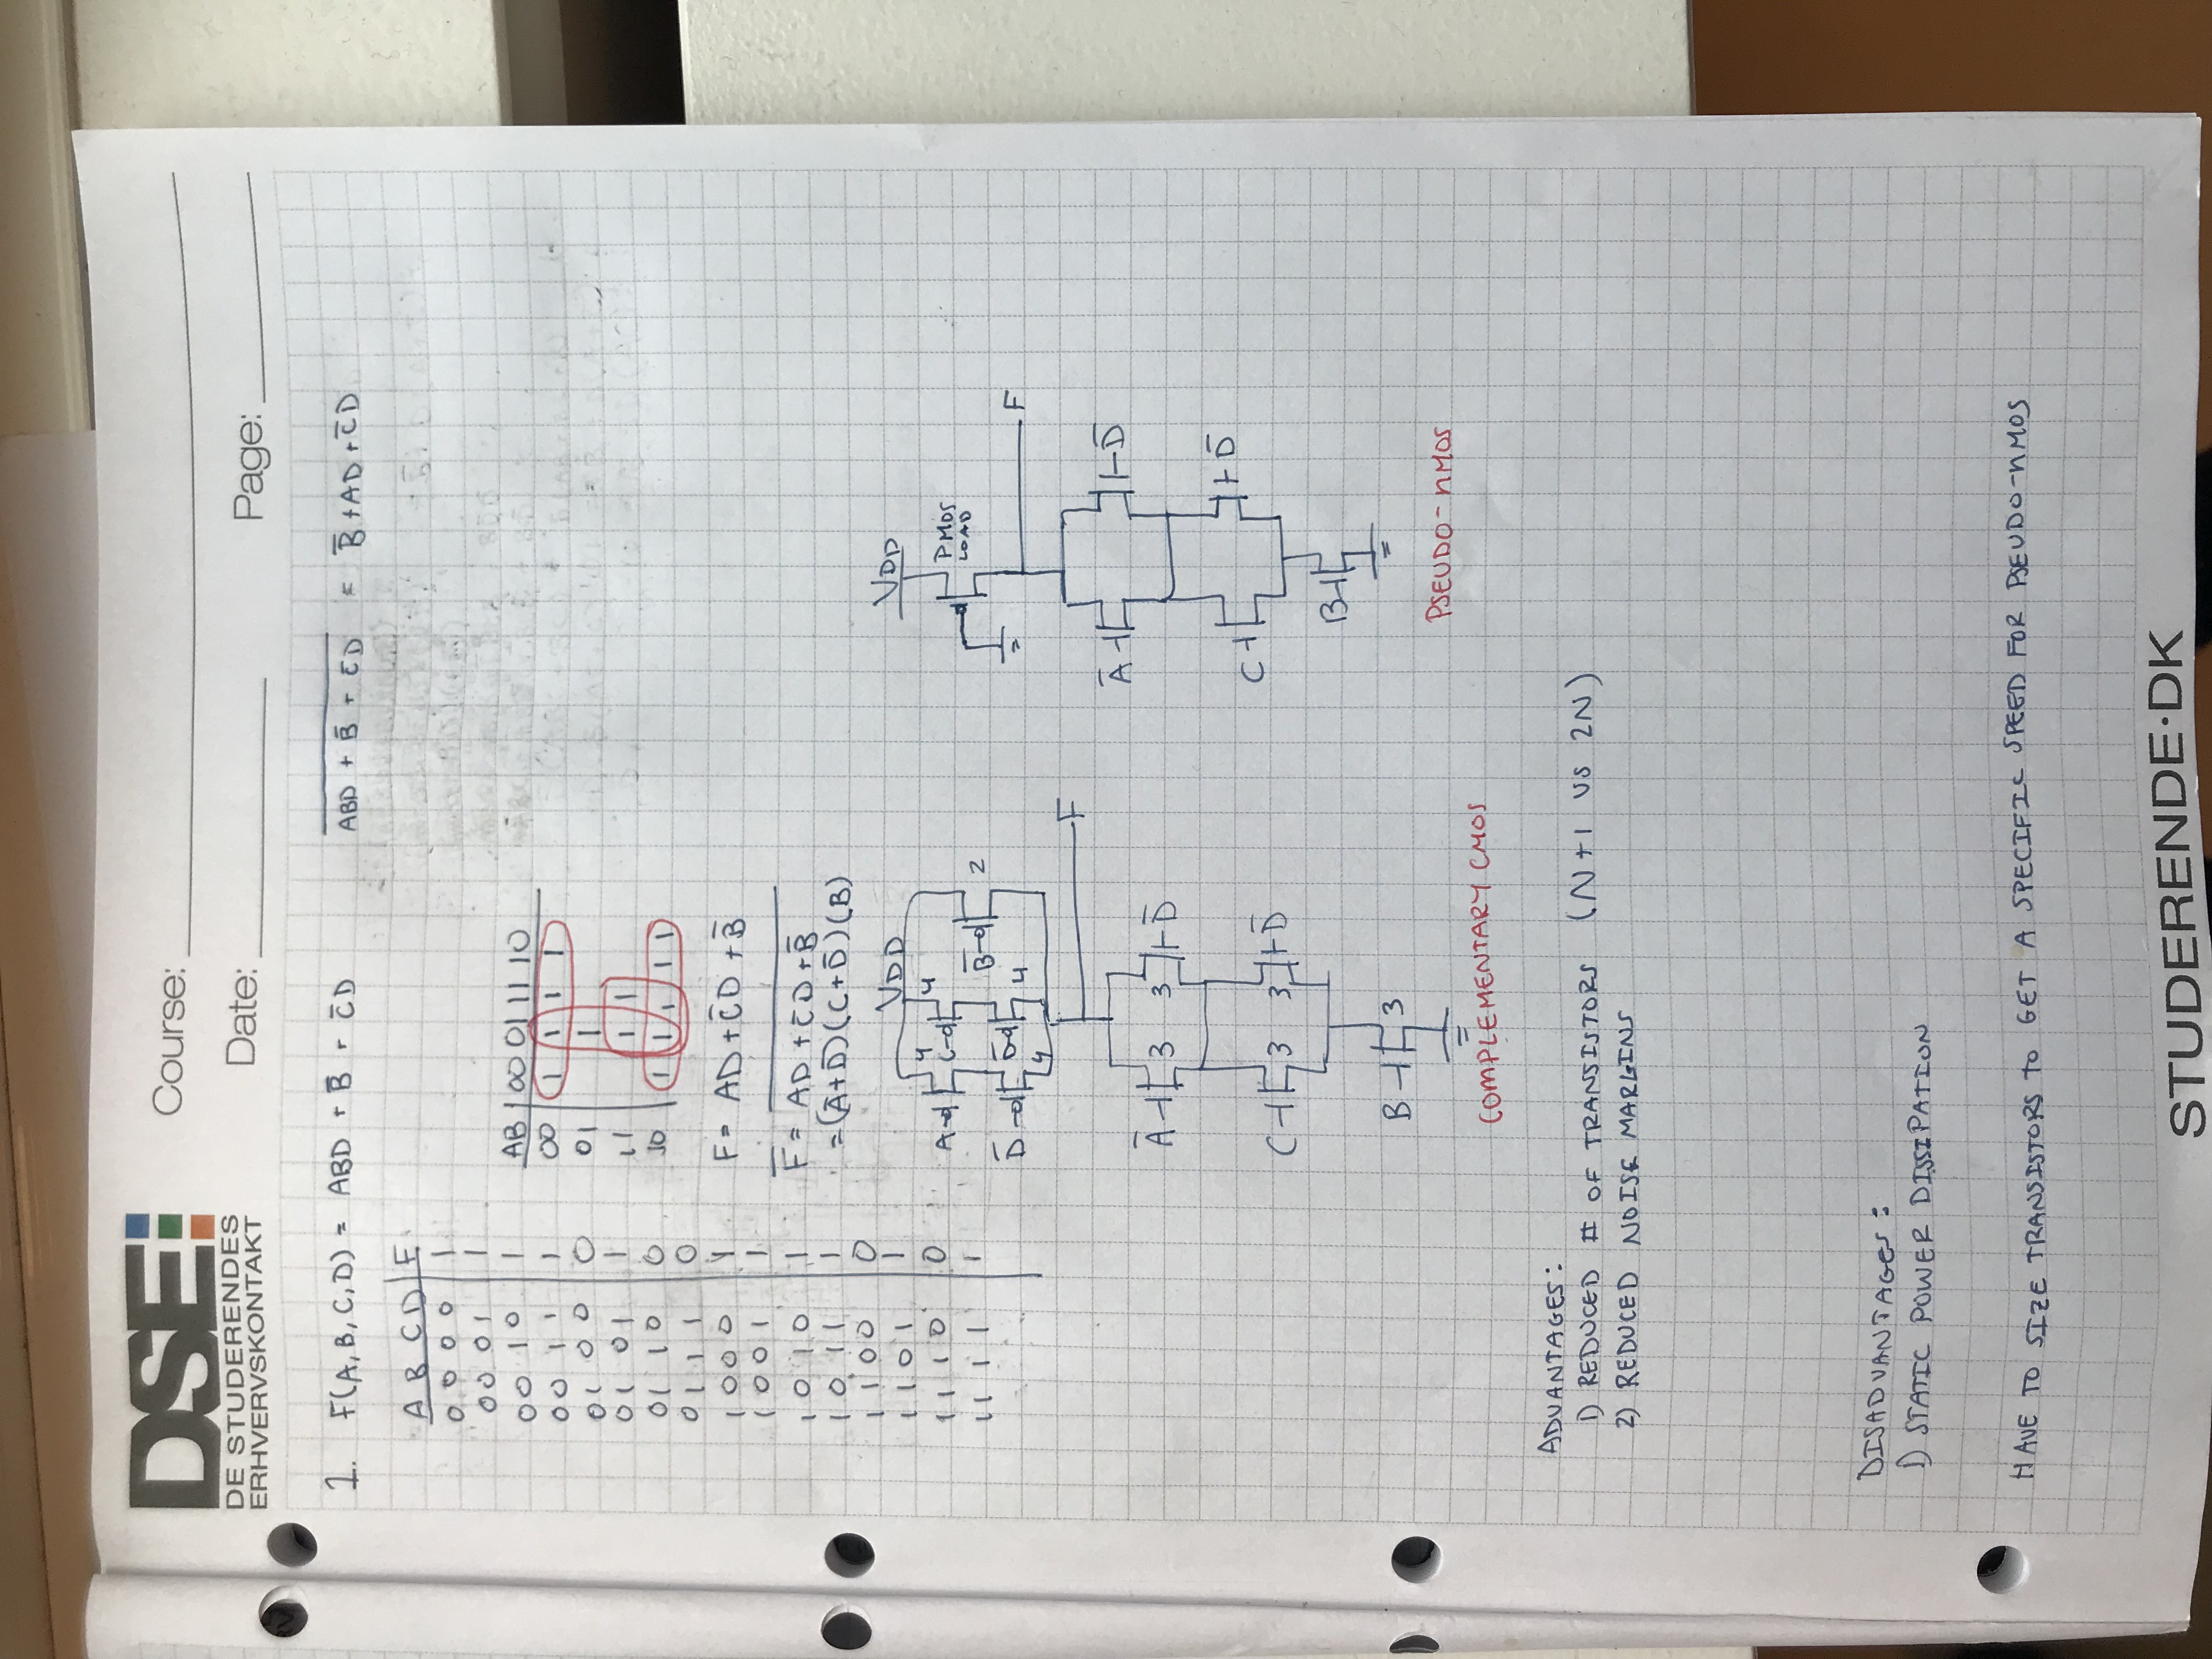 DSE
DE STUDERENDES
ERHVERVSKONTAKT
Course:
Date:
Page:
1. F(A,B,C,D) = ABD + B̅ + C̅D
A̅B̅D̅ ̅+̅ ̅B̅ ̅+̅ ̅C̅D̅ = B̅ + AD + C̅D
A B C D | F
0 0 0 0 | 1
0 0 0 1 | 1
0 0 1 0 | 1
0 0 1 1 | 1
0 1 0 0 | 0
0 1 0 1 | 1
0 1 1 0 | 0
0 1 1 1 | 0
1 0 0 0 | 1
1 0 0 1 | 1
1 0 1 0 | 1
1 0 1 1 | 1
1 1 0 0 | 0
1 1 0 1 | 1
1 1 1 0 | 0
1 1 1 1 | 1
AB | 00 01 11 10
00 | 1 1 1 1
01 | 1
11 | 1 1
10 | 1 1 1 1 1
F = AD + C̅D + B̅
F̅ = A̅D̅ ̅+̅ ̅C̅D̅ ̅+̅ ̅B̅
= (A̅ + D̅)(C + D̅)(B)
VDD
A 4 C 4
B̅ 2
D̅ 4 D̅ 4
F
A̅ 3 3 D̅
C 3 3 D̅
B 3
COMPLEMENTARY CMOS
VDD
PMOS
LOAD
F
A̅ D̅
C D̅
B
PSEUDO-nMOS
ADVANTAGES:
1) REDUCED # OF TRANSISTORS (N+1 VS 2N)
2) REDUCED NOISE MARGINS
DISADVANTAGES:
1) STATIC POWER DISSIPATION
HAVE TO SIZE TRANSISTORS TO GET A SPECIFIC SPEED FOR PSEUDO-nMOS
STUDERENDE·DK